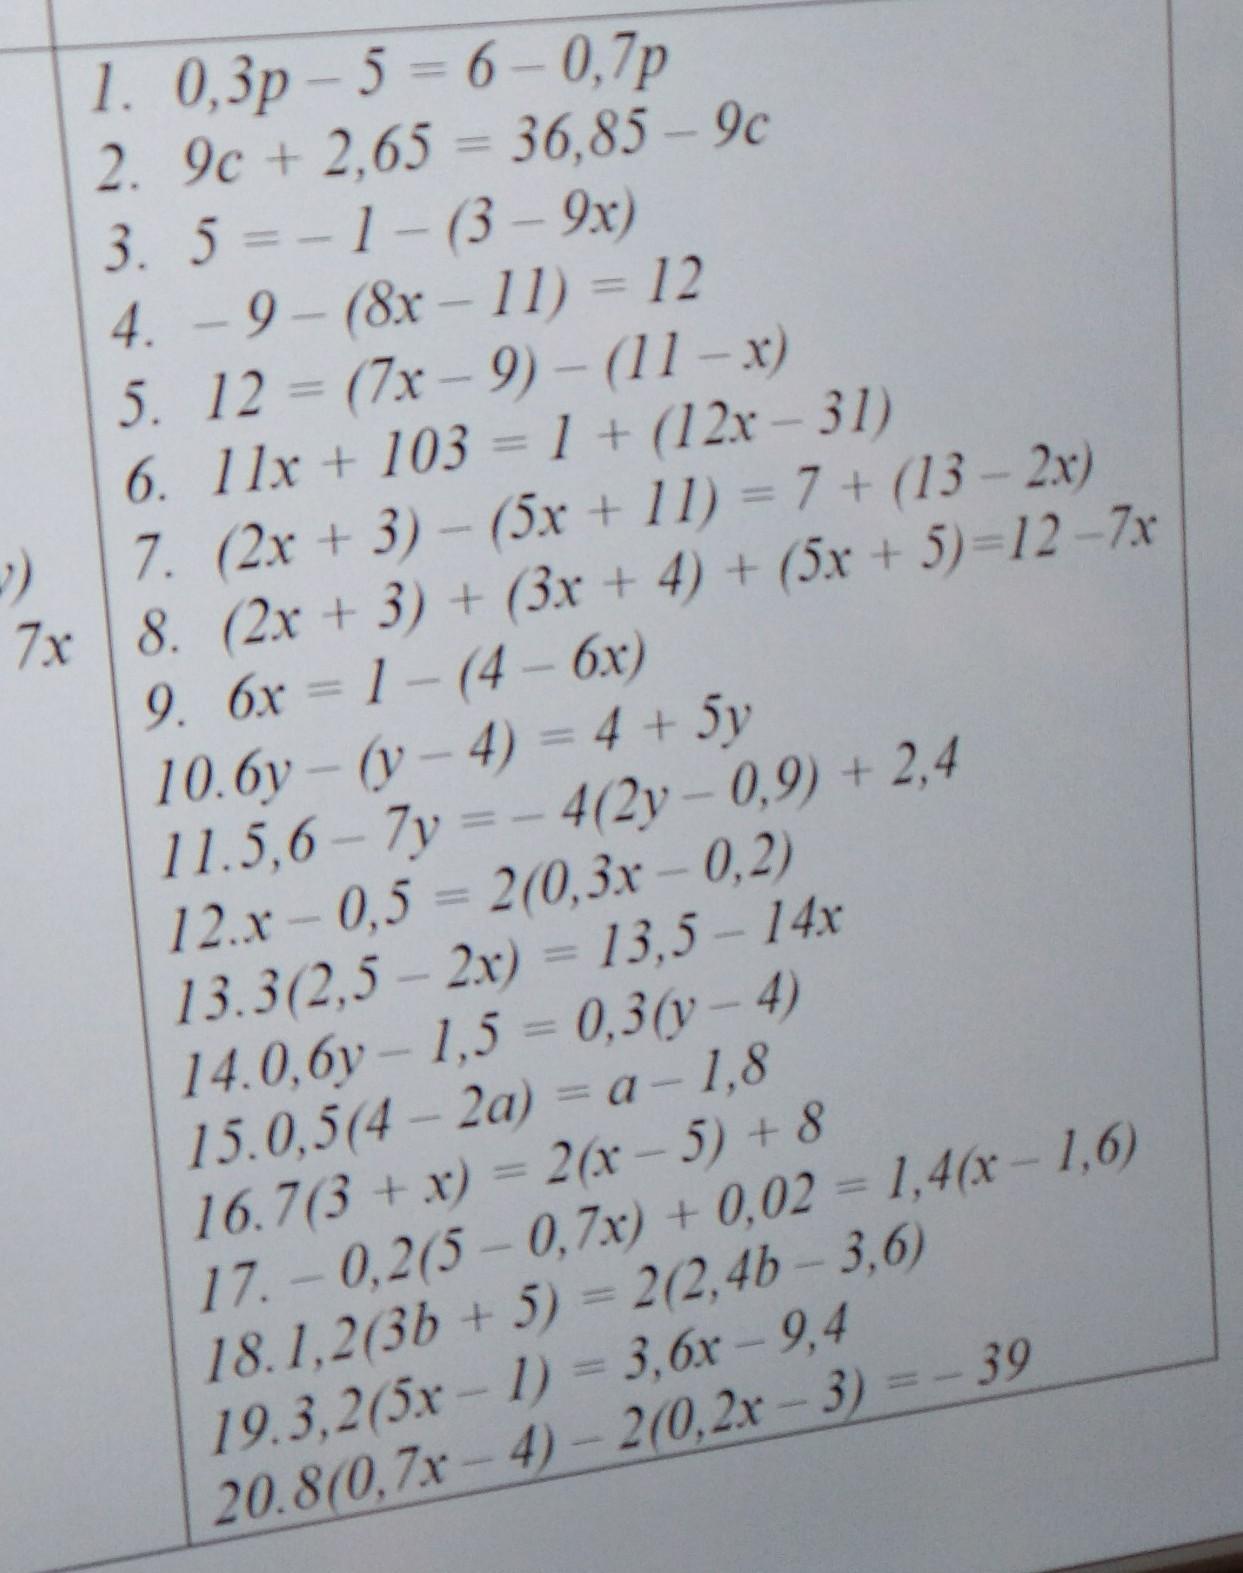 1. 0,3p – 5 = 6 – 0,7p
2. 9c + 2,65 = 36,85 – 9c
3. 5 = – 1 – (3 – 9x)
4. – 9 – (8x – 11) = 12
5. 12 = (7x – 9) – (11 – x)
6. 11x + 103 = 1 + (12x – 31)
7. (2x + 3) – (5x + 11) = 7 + (13 – 2x)
8. (2x + 3) + (3x + 4) + (5x + 5)=12 –7x
7x
9. 6x = 1 – (4 – 6x)
10.6y – (y – 4) = 4 + 5y
11.5,6 – 7y = – 4(2y – 0,9) + 2,4
12.x – 0,5 = 2(0,3x – 0,2)
13.3(2,5 – 2x) = 13,5 – 14x
14.0,6y – 1,5 = 0,3(y – 4)
15.0,5(4 – 2a) = a – 1,8
16.7(3 + x) = 2(x – 5) + 8
17. – 0,2(5 – 0,7x) + 0,02 = 1,4(x – 1,6)
18.1,2(3b + 5) = 2(2,4b – 3,6)
19.3,2(5x – 1) = 3,6x – 9,4
20.8(0,7x – 4) – 2(0,2x – 3) = – 39